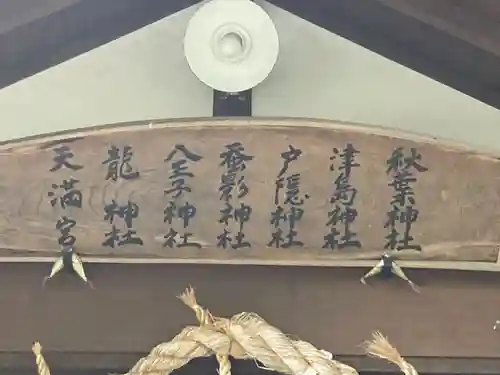 秋葉神社
津島神社
戸隠神社
蚕影神社
八王子神社
龍神社
天満宮